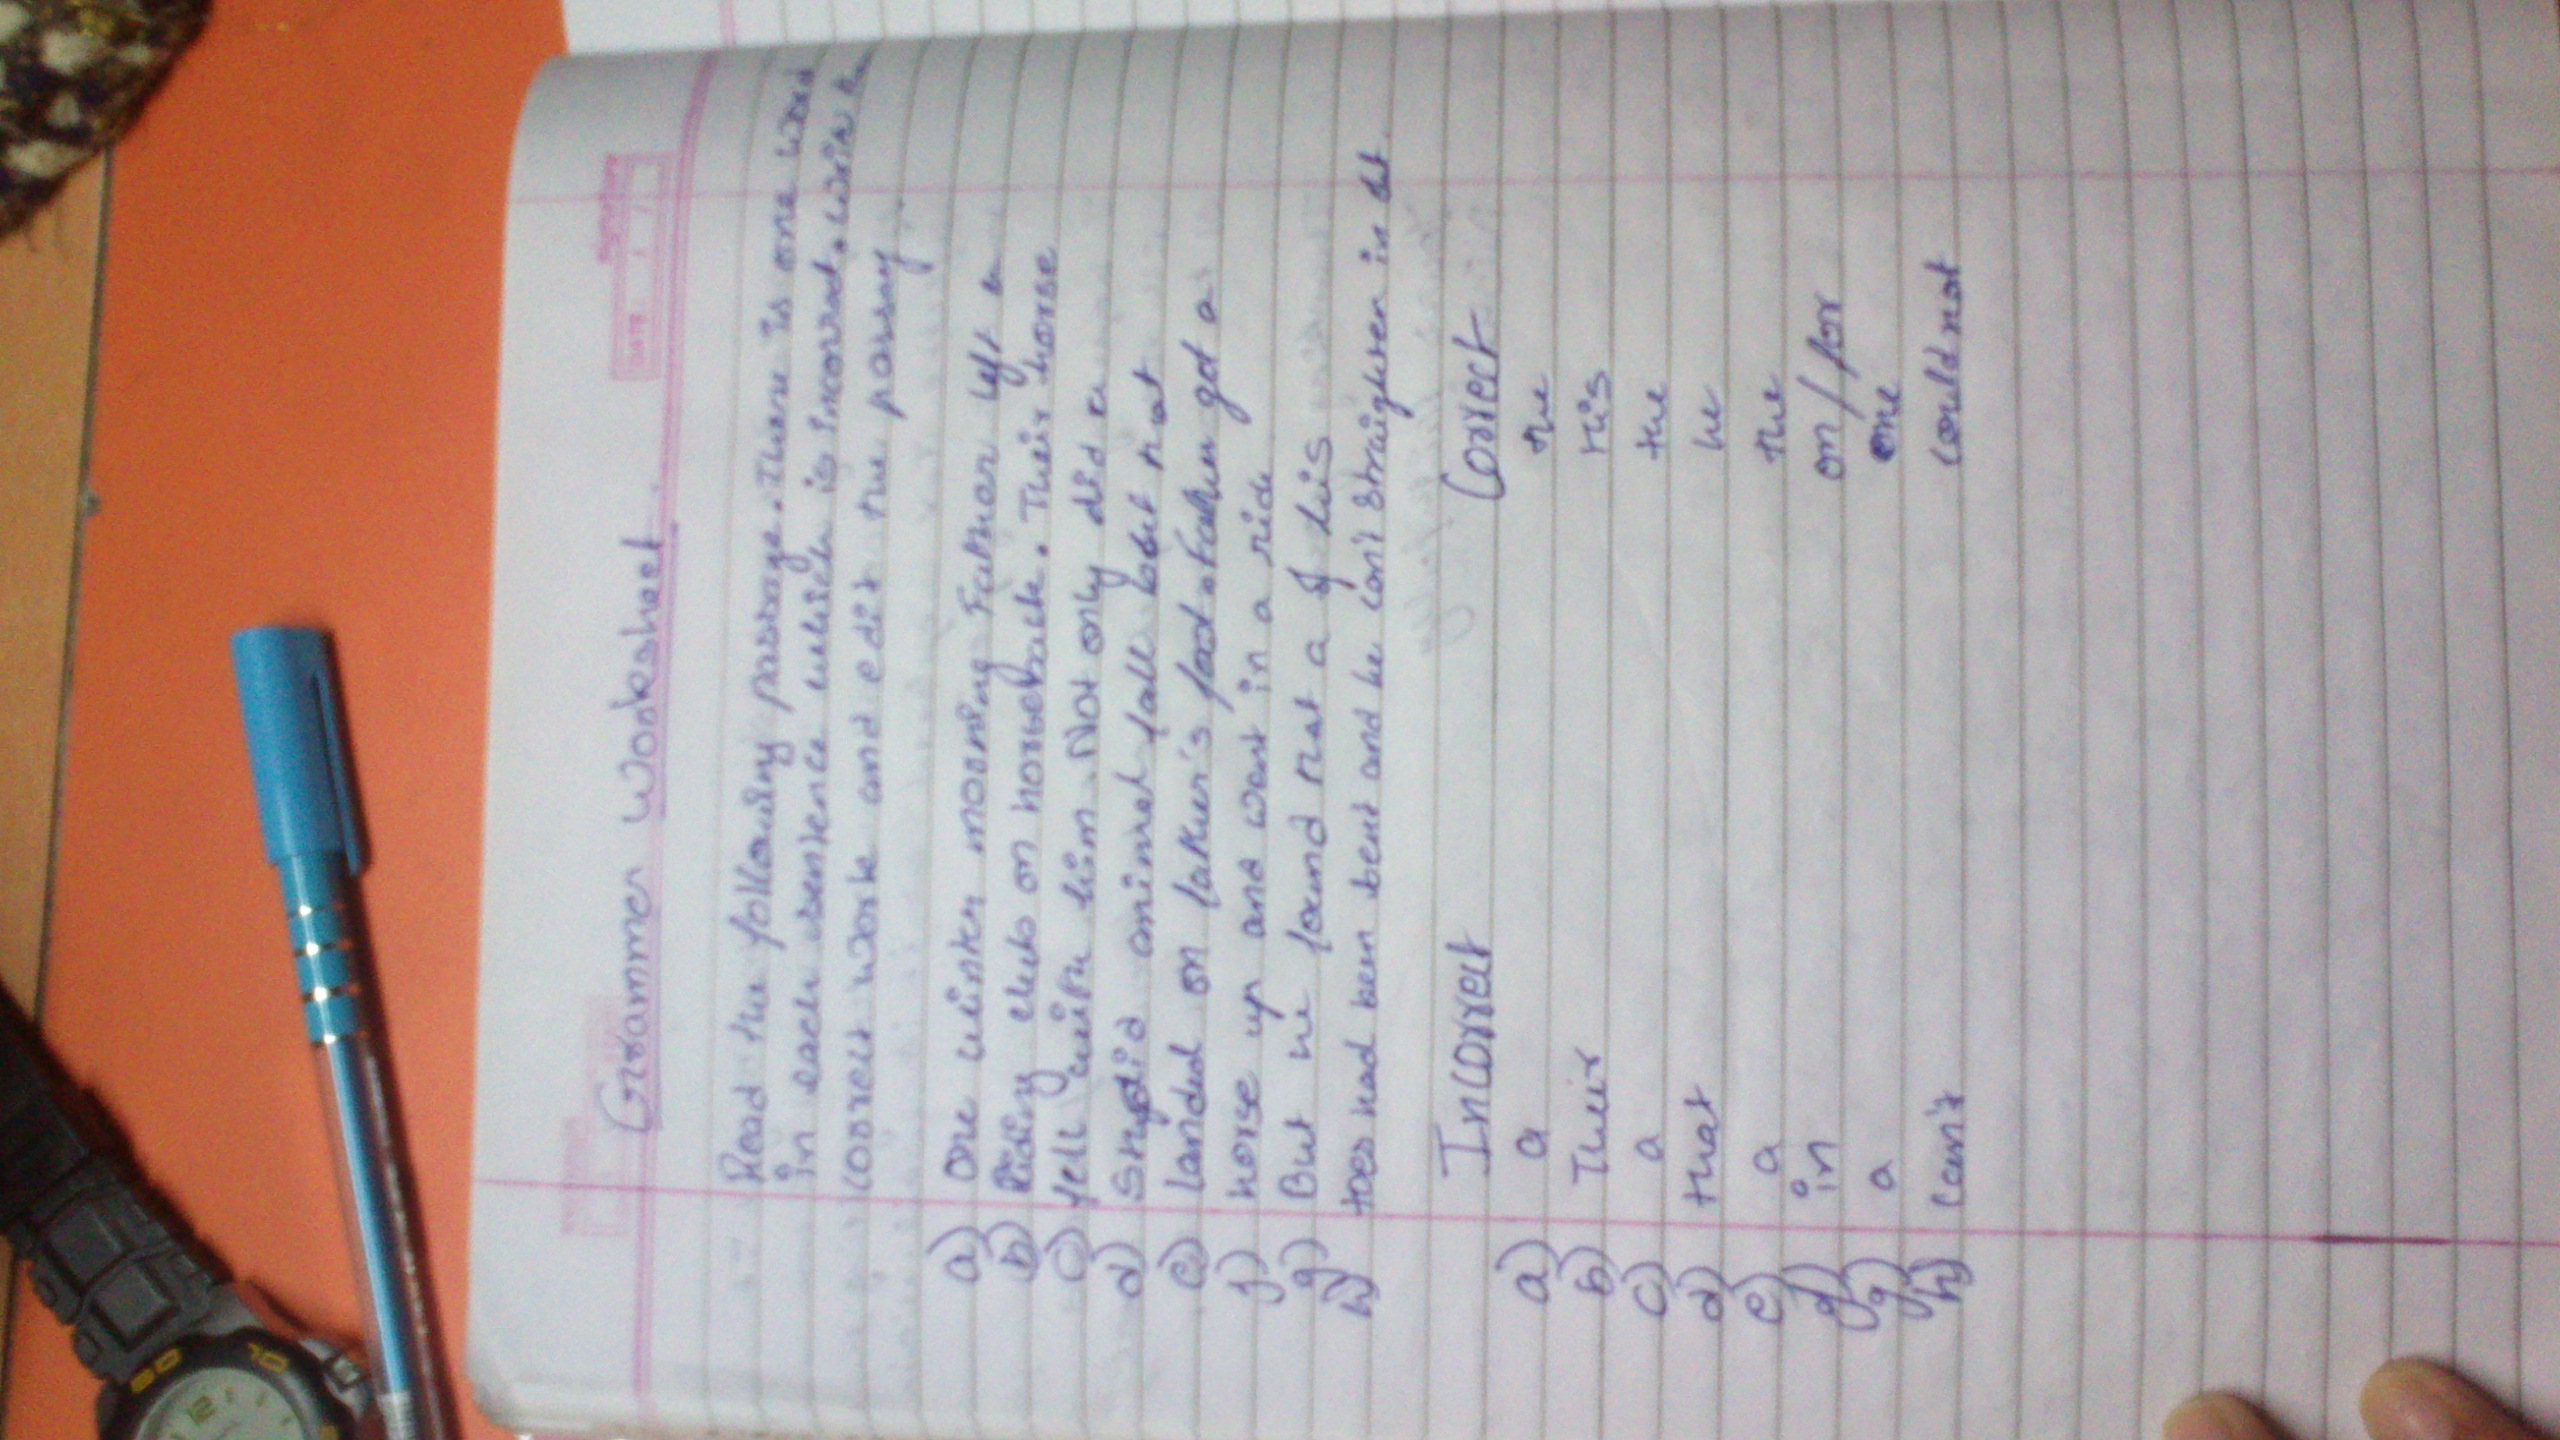 Grammer Worksheet.
DATE
Read the following passage. There is one word
in each sentence which is incorrect. Write the
correct work and edit the passag
a) One winter morning Father left a
b) Riding club on horseback. Their horse
c) fell with him. Not only did a
d) Stupid animal fall but that
e) landed on father's foot. Father got a
f) horse up and went in a ride
g) But he found that a of his
h) toes had been bent and he can't straighten in
Incorrect Correct
a) a the
b) Their his
c) a the
d) that he
e) a the
in on/for
g) a one
h) Can't Could not